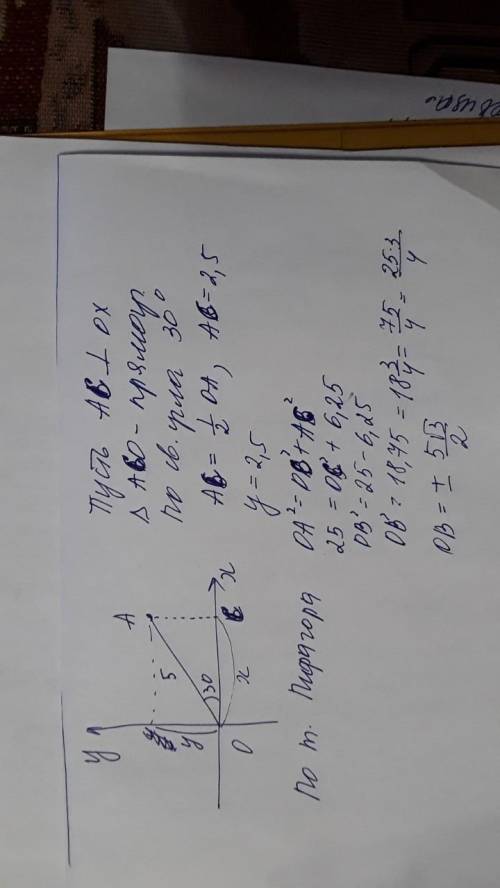 Пусть AB ⊥ OX
Δ ABO – прямоуг.
по св. угла 30°
AB = 1/2 OA, AB = 2,5
y = 2,5
y
A
5
y
30
x
O
x
B
По т. Пифагора OA² = OB² + AB²
25 = OB² + 6,25
OB² = 25 - 6,25
OB² = 18,75 = 18 3/4 = 75/4 = 25·3/4
OB = ± 5√3/2